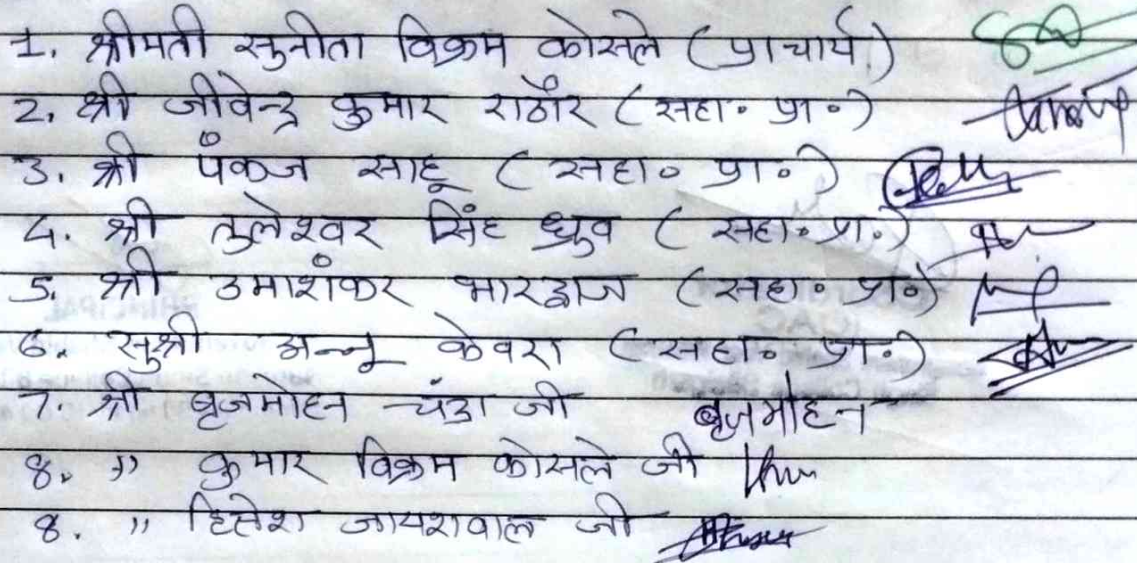 1. श्रीमती सुनीता विक्रम कोसले (प्राचार्य)
2. श्री जीवेन्द्र कुमार राठौर (सहा॰ प्रा॰)
3. श्री पंकज साहू (सहा॰ प्रा॰)
4. श्री तुलेश्वर सिंह ध्रुव (सहा॰ प्रा॰)
5. श्री उमाशंकर भारद्वाज (सहा॰ प्रा॰)
6. सुश्री अन्नू केवरा (सहा॰ प्रा॰)
7. श्री बृजमोहन चंद्रा जी बृजमोहन
8. " कुमार विक्रम कोसले जी
8. " हितेश जायसवाल जी